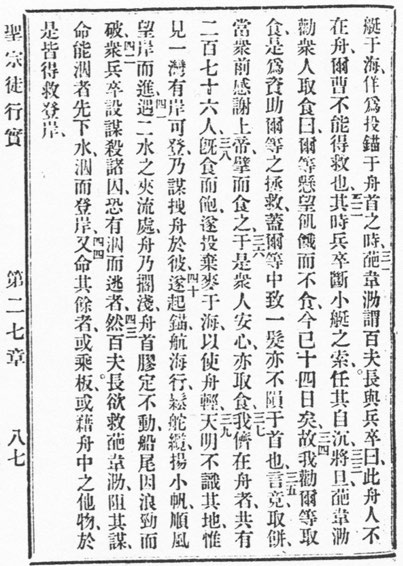 艇于海佯爲投錨于舟首之時三一葩韋泐謂百夫長與兵卒曰此舟人不
在舟爾曹不能得救也三二其時兵卒斷小艇之索任其自沉三三將旦葩韋泐
勸衆人取食曰爾等懸望飢餓而不食今已十四日矣三四故我勸爾等取
食是爲資助爾等之拯救蓋爾等中致一髮亦不隕于首也三五言竟取餅
當衆前感謝上帝擘而食之三六于是衆人安心亦取食三七我儕在舟者共有
二百七十六人三八既食而飽遂投棄麥于海以使舟輕三九天明不識其地惟
見一灣有岸可登乃謀拽舟於彼四十遂起錨航海行鬆舵纜揚小帆順風
望岸而進四一遇二水之夾流處舟乃擱淺舟首膠定不動船尾因浪勁而
破四二衆兵卒設謀殺諸囚恐有泅而逃者四三然百夫長欲救葩韋泐阻其謀
命能泅者先下水泅而登岸四四又命其餘者或乘板或藉舟中之他物於
是皆得救登岸
聖宗徒行實 第二七章 八七